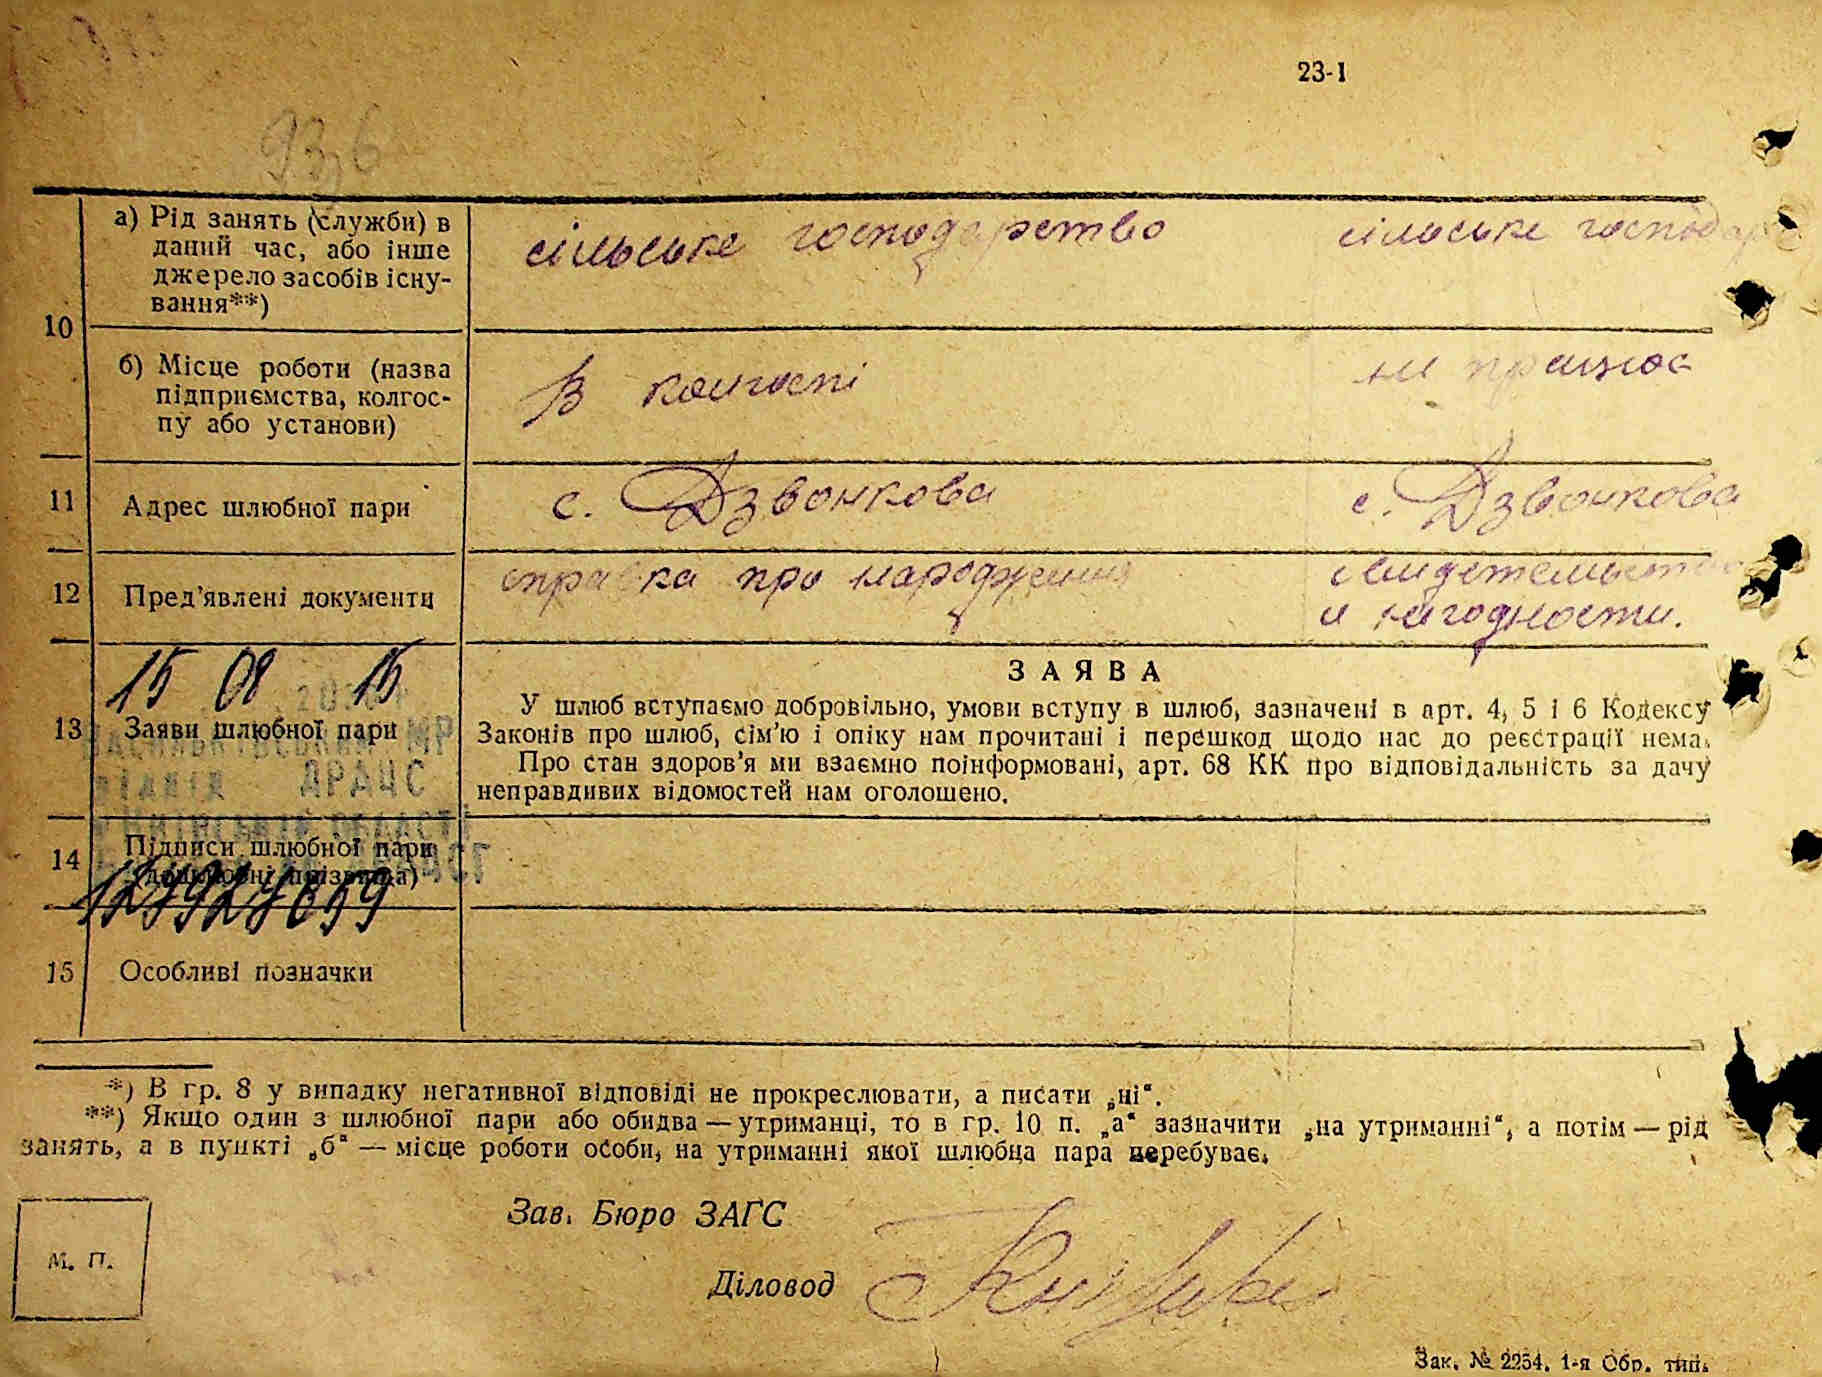 23-1
93,6
10
а) Рід занять (служби) в
даний час, або інше
джерело засобів існу-
вання**)
сільське господарство
сільське господар
б) Місце роботи (назва
підприємства, колгос-
пу або установи)
В колгоспі
не працює
11
Адрес шлюбної пари
с. Дзвонкова
с. Дзвонкова
12
Пред'явлені документи
справка про народження
свидетельство
о негодности.
15 08 15
13
Заяви шлюбної пари
ЗАЯВА
У шлюб вступаємо добровільно, умови вступу в шлюб, зазначені в арт. 4, 5 і 6 Кодексу
Законів про шлюб, сім'ю і опіку нам прочитані і перешкод щодо нас до реєстрації нема.
Про стан здоров'я ми взаємно поінформовані, арт. 68 КК про відповідальність за дачу
неправдивих відомостей нам оголошено.
МР
відділ ДРАЦС
Київській області
14
Підписи шлюбної пари
(дошлюбні прізвища)
15
Особливі позначки
*) В гр. 8 у випадку негативної відповіді не прокреслювати, а писати „ні“.
**) Якщо один з шлюбної пари або обидва — утриманці, то в гр. 10 п. „а“ зазначити „на утриманні“, а потім — рід
занять, а в пункті „б“ — місце роботи особи, на утриманні якої шлюбна пара перебуває.
Зав. Бюро ЗАГС
М. П.
Діловод
Зак. № 2254. 1-я Обр. тип.